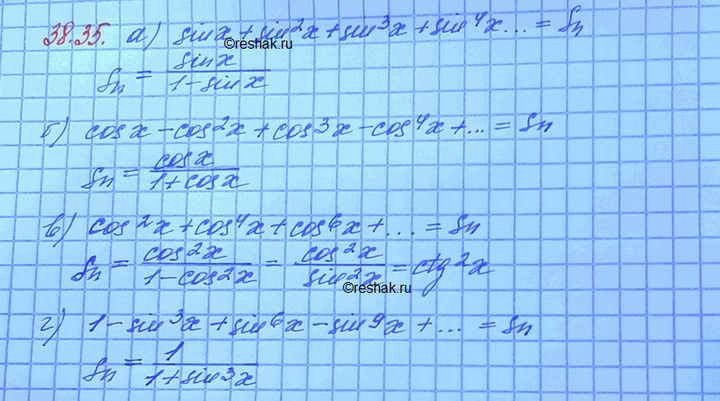 38.35. а) sinx + sin²x + sin³x + sin⁴x... = Sn
©reshak.ru
Sn = sinx / 1 - sinx
б) cosx - cos²x + cos³x - cos⁴x + ... = Sn
Sn = cosx / 1 + cosx
в) cos²x + cos⁴x + cos⁶x + ... = Sn
Sn = cos²x / 1 - cos²x = cos²x / sin²x = ctg²x
©reshak.ru
г) 1 - sin³x + sin⁶x - sin⁹x + ... = Sn
Sn = 1 / 1 + sin³x